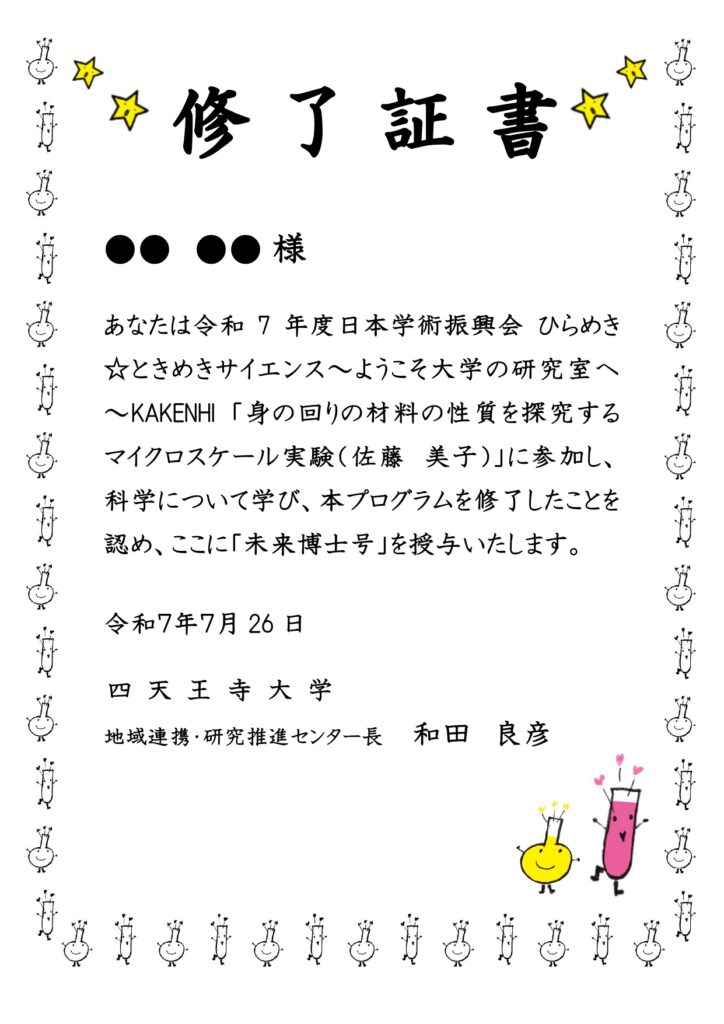 修了証書
●● ●● 様
あなたは令和 7 年度日本学術振興会 ひらめき
☆ときめきサイエンス～ようこそ大学の研究室へ
～KAKENHI 「身の回りの材料の性質を探究する
マイクロスケール実験(佐藤 美子)」に参加し、
科学について学び、本プログラムを修了したことを
認め、ここに「未来博士号」を授与いたします。
令和7年7月 26 日
四 天 王 寺 大 学
地域連携・研究推進センター長 和田 良彦